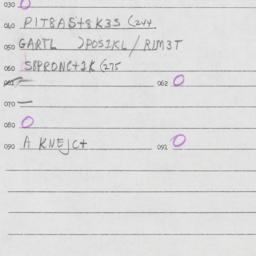 030 O
040 PIT8AS+8K3S (244
050 GARTL )POS1KL/RIM3T
060 SPPRONC+1K (275
061 062 O
070 —
080 O
090 A KNEJC+ 091 O